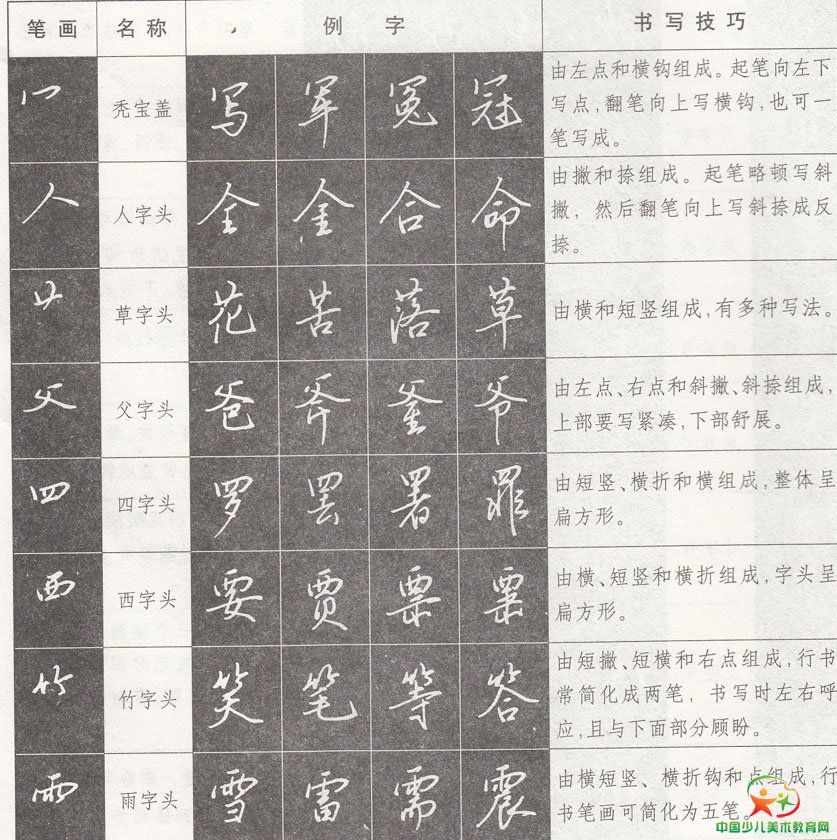 笔画 名称 例字 书写技巧
冖 秃宝盖 写 军 冤 冠
由左点和横钩组成。起笔向左下
写点,翻笔向上写横钩,也可一
笔写成。
人 人字头 全 金 合 命
由撇和捺组成。起笔略顿写斜
撇，然后翻笔向上写斜捺成反
捺。
艹 草字头 花 苦 落 草
由横和短竖组成,有多种写法。
父 父字头 爸 斧 釜 爷
由左点、右点和斜撇、斜捺组成,
上部要写紧凑,下部舒展。
罒 四字头 罗 罢 署 罪
由短竖、横折和横组成,整体呈
扁方形。
西 西字头 要 贾 票 栗
由横、短竖和横折组成,字头呈
扁方形。
竹 竹字头 笑 笔 等 答
由短撇、短横和右点组成,行书
常简化成两笔，书写时左右呼
应,且与下面部分顾盼。
雨 雨字头 雪 雷 需 震
由横短竖、横折钩和点组成,行
书笔画可简化为五笔。
中国少儿美术教育网